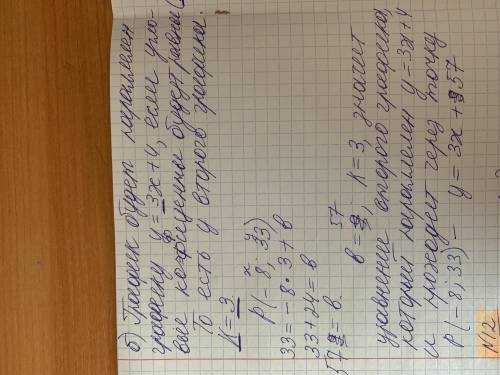 б) График будет параллелен
графику у = 3х+4, если угло-
вые коэфиценты будут равны
То есть у второго графика
К = 3.
х у
Р(-8; 33)
33 = -8 · 3 + в
33 + 24 = в
57 = в.
в = 57, к = 3, значит
уравнение второго графика,
который параллелен у = 3х+4
и проходит через точку
Р(-8; 33) - у = 3х + 57
N12